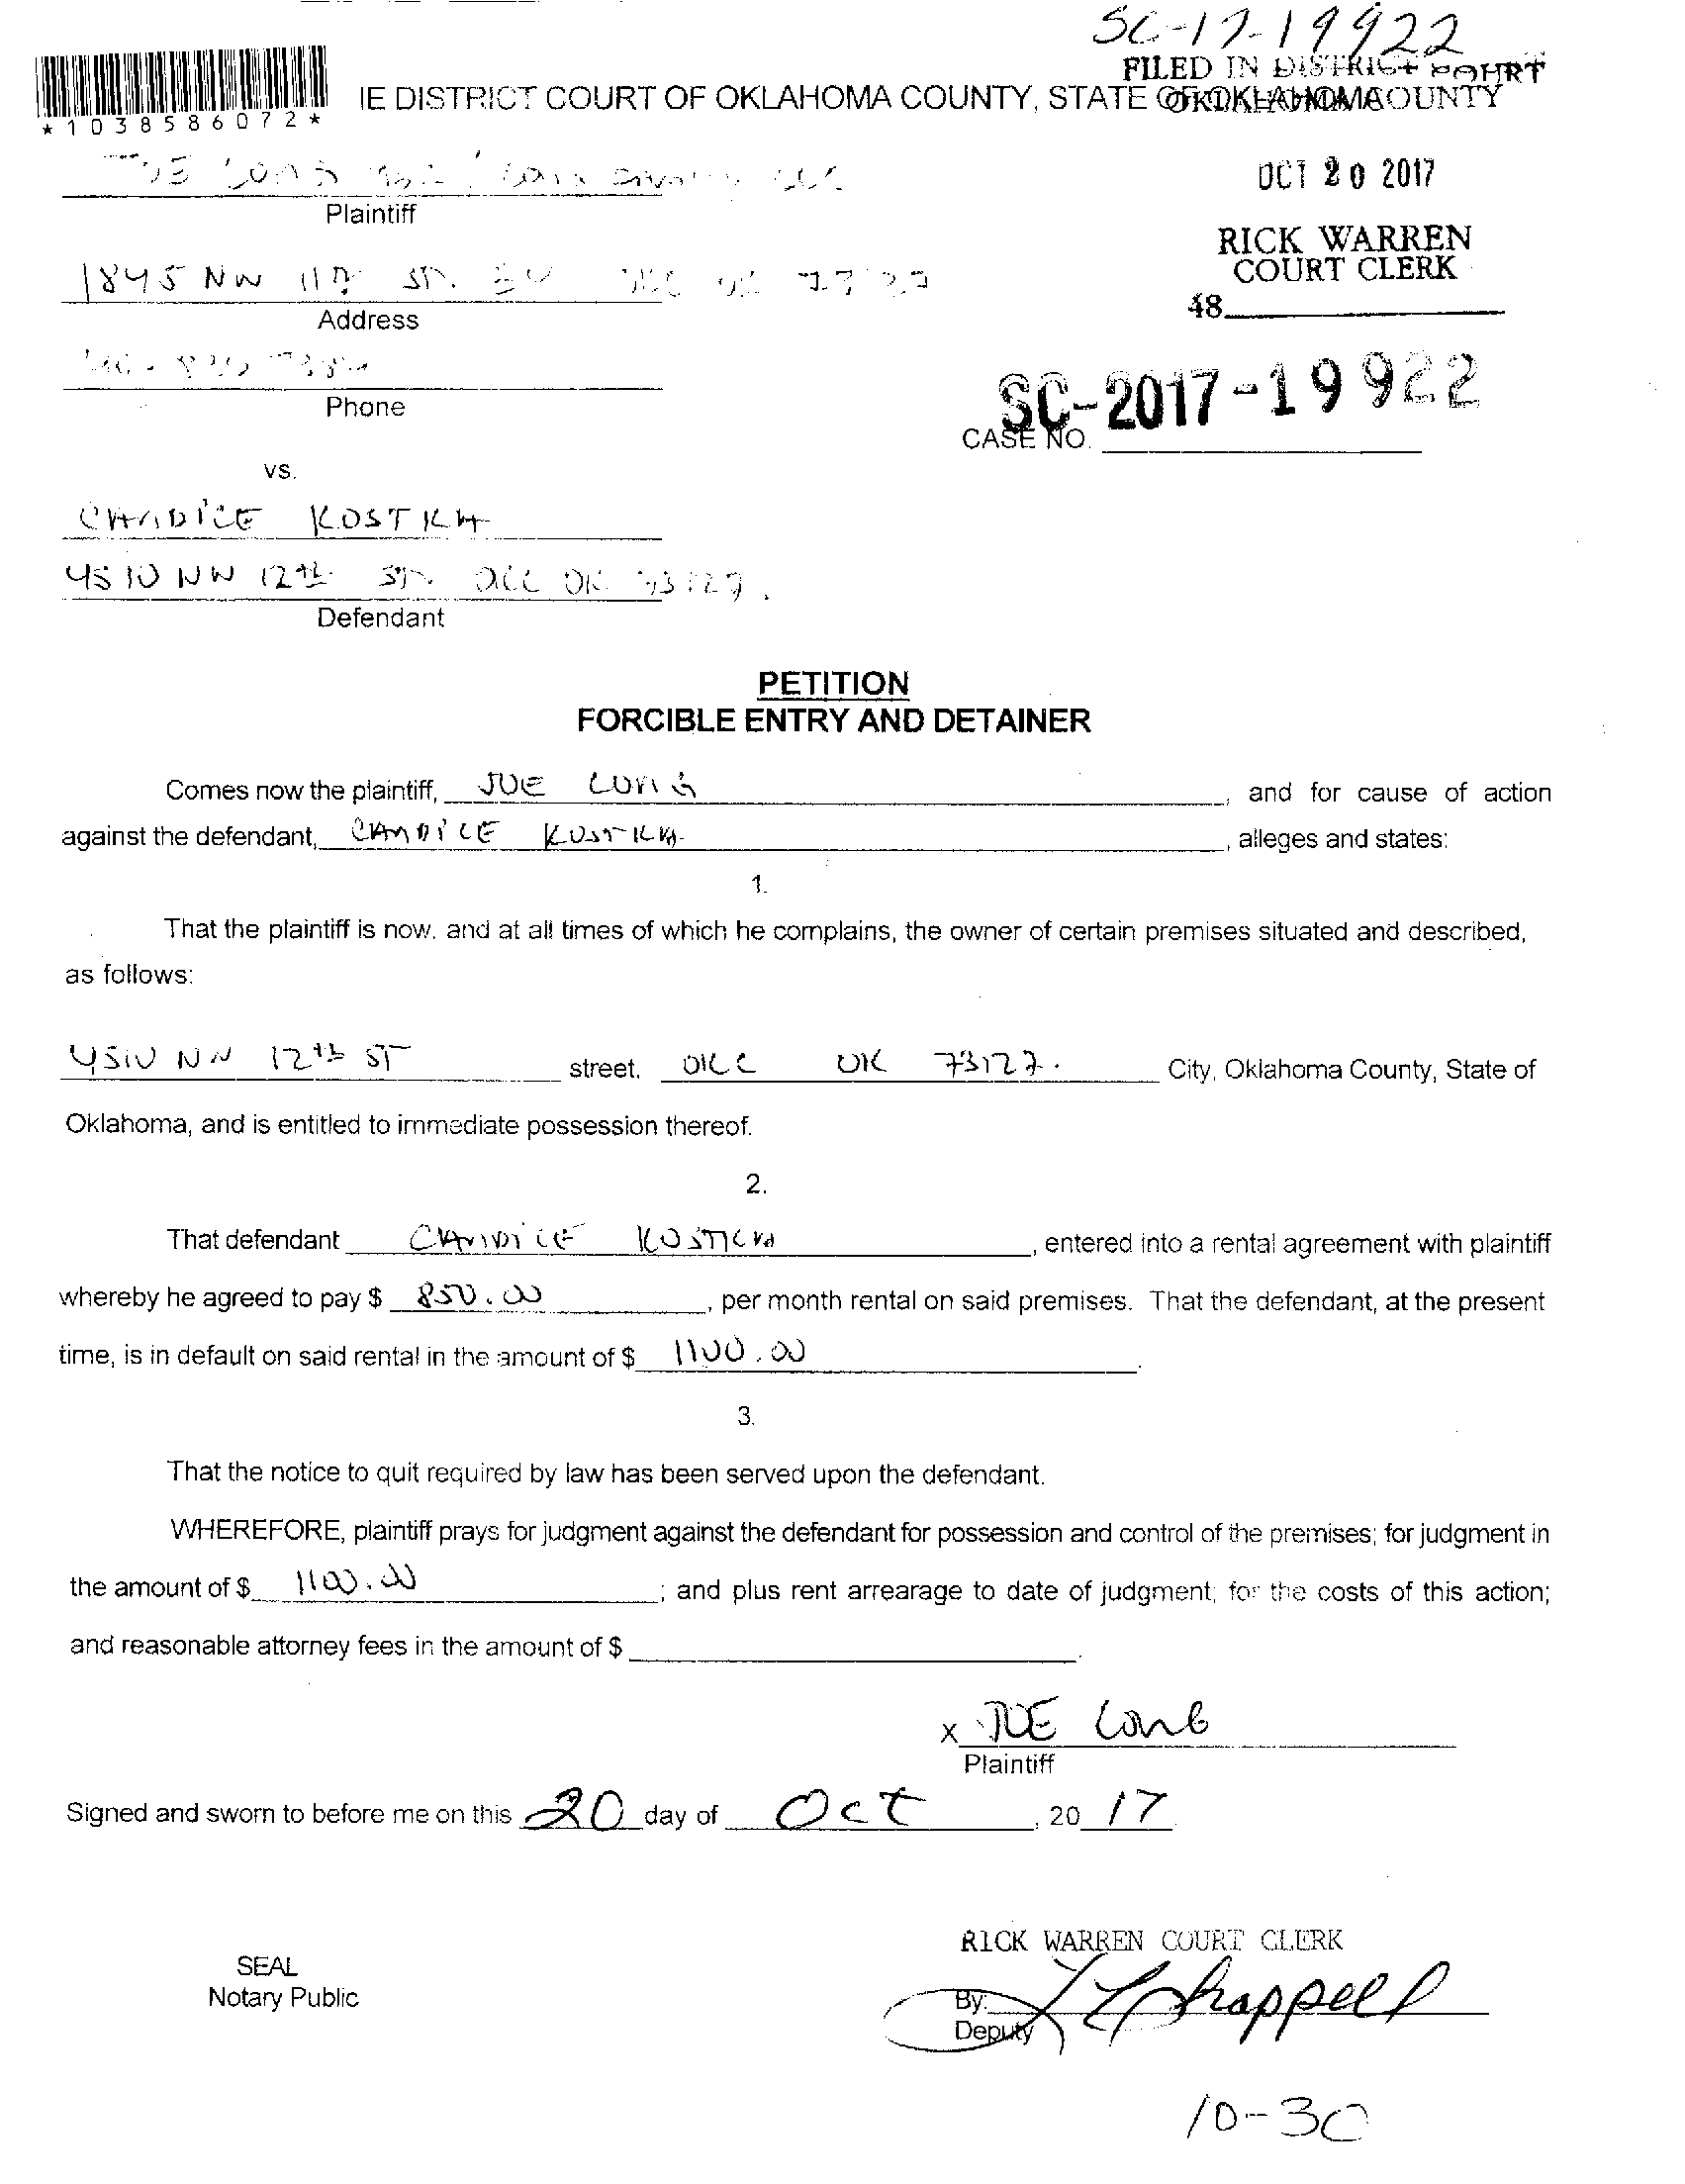 SC-17-19922
FILED IN DISTRICT COURT
IE DISTRICT COURT OF OKLAHOMA COUNTY, STATE OF OKLAHOMA
OKLAHOMA COUNTY
*1038586072*
JOE LONG LLC
OCT 20 2017
Plaintiff
RICK WARREN
COURT CLERK
1845 NW ST. OKC OK
48
Address
Phone
SC-2017-19922
CASE NO.
vs.
CANDICE KOSTKA
4510 NW 12th ST. OKC OK 73127.
Defendant
PETITION
FORCIBLE ENTRY AND DETAINER
Comes now the plaintiff, JOE LONG, and for cause of action
against the defendant, CANDICE KOSTKA, alleges and states:
1.
That the plaintiff is now, and at all times of which he complains, the owner of certain premises situated and described,
as follows:
4510 NW 12th ST street, OKC OK 73127. City, Oklahoma County, State of
Oklahoma, and is entitled to immediate possession thereof.
2.
That defendant CANDICE KOSTKA, entered into a rental agreement with plaintiff
whereby he agreed to pay $ 850.00, per month rental on said premises. That the defendant, at the present
time, is in default on said rental in the amount of $ 1100.00.
3.
That the notice to quit required by law has been served upon the defendant.
WHEREFORE, plaintiff prays for judgment against the defendant for possession and control of the premises; for judgment in
the amount of $ 1100.00; and plus rent arrearage to date of judgment; for the costs of this action;
and reasonable attorney fees in the amount of $ .
X JOE LONG
Plaintiff
Signed and sworn to before me on this 20 day of Oct, 20 17
RICK WARREN COURT CLERK
SEAL
Notary Public
By: Chappell
Deputy
10-30